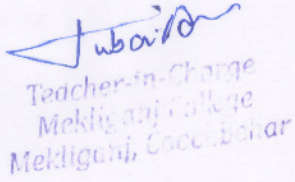 Teacher-in-Charge
Mekliganj College
Mekliganj, Coochbehar